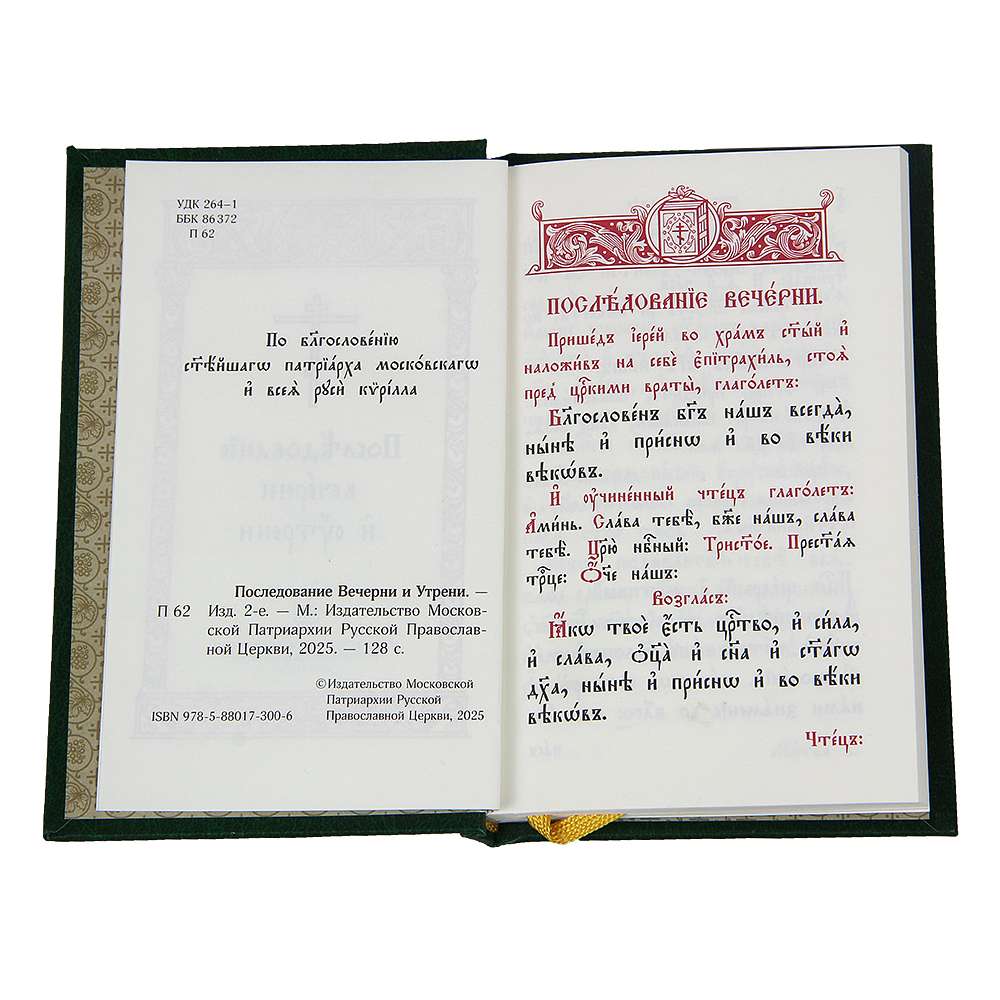 УДК 264–1
ББК 86372
П 62
По бл҃гослове́нїю
ст҃ѣ́йшагѡ патрїа́рха моско́вскагѡ
и҆ всеѧ̀ рꙋсѝ кѷрі́лла
Последование Вечерни и Утрени. —
П 62 Изд. 2-е. — М.: Издательство Москов-
ской Патриархии Русской Православ-
ной Церкви, 2025. — 128 с.
©Издательство Московской
Патриархии Русской
ISBN 978-5-88017-300-6 Православной Церкви, 2025
ПОСЛѢ́ДОВАНЇЕ ВЕЧЕ́РНИ.
Прише́дъ і҆ере́й во хра́мъ ст҃ы́й и҆
наложи́въ на себѐ є҆пїтрахи́ль, стоѧ̀
пред̾ цр҃кими враты̀, глаго́летъ:
Бл҃гослове́нъ бг҃ъ на́шъ всегда̀,
ны́нѣ и҆ при́снѡ и҆ во вѣ́ки
вѣкѡ́въ.
И҆ ᲂу҆чине́нный чте́цъ глаго́летъ:
А҆ми́нь. Сла́ва тебѣ̀, бж҃е на́шъ, сла́ва
тебѣ̀. Цр҃ю̀ нбⷭ҇ный: Трист҃о́е. Прест҃а́ѧ
трⷪ҇це: Ѻ҆́ч҃е на́шъ:
Во́згласъ:
Ꙗ҆́кѡ твоѐ є҆́сть црⷭ҇тво, и҆ си́ла,
и҆ сла́ва, ѻ҆ц҃а̀ и҆ сн҃а и҆ ст҃а́гѡ
дх҃а, ны́нѣ и҆ при́снѡ и҆ во вѣ́ки
вѣкѡ́въ.
Чте́цъ: